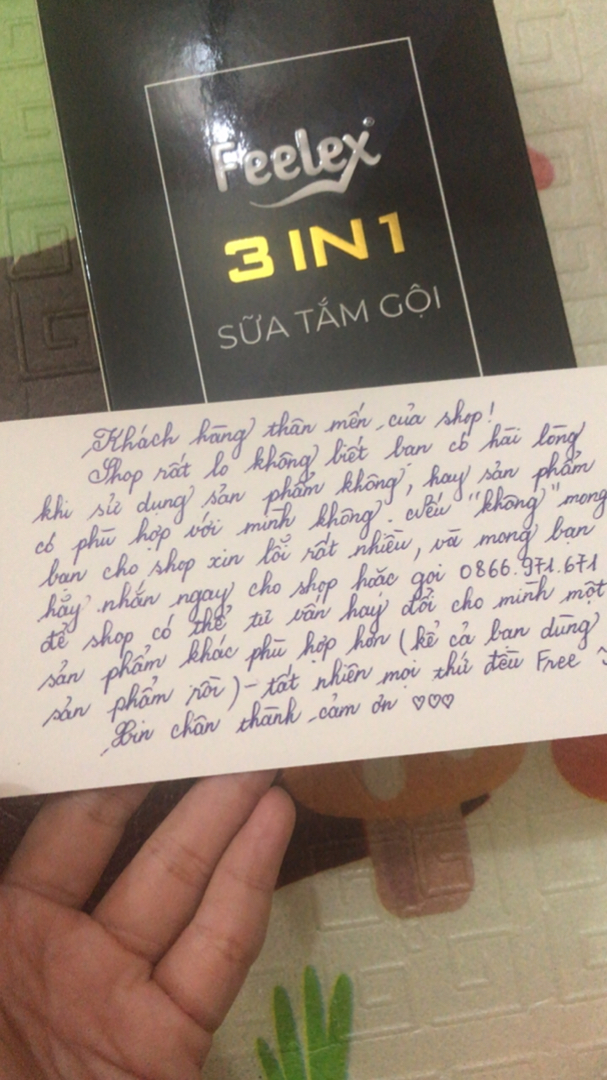 Feelex
3 IN 1
SỮA TẮM GỘI
Khách hàng thân mến của shop!
Shop rất lo không biết bạn có hài lòng
khi sử dụng sản phẩm không, hay sản phẩm
có phù hợp với mình không. Nếu "không" mong
bạn cho shop xin lỗi rất nhiều, và mong bạn
hãy nhắn ngay cho shop hoặc gọi 0866.971.671
để shop có thể tư vấn hay đổi cho mình một
sản phẩm khác phù hợp hơn (kể cả bạn dùng
sản phẩm rồi) - tất nhiên mọi thứ đều Free ~
Xin chân thành cảm ơn ♡♡♡